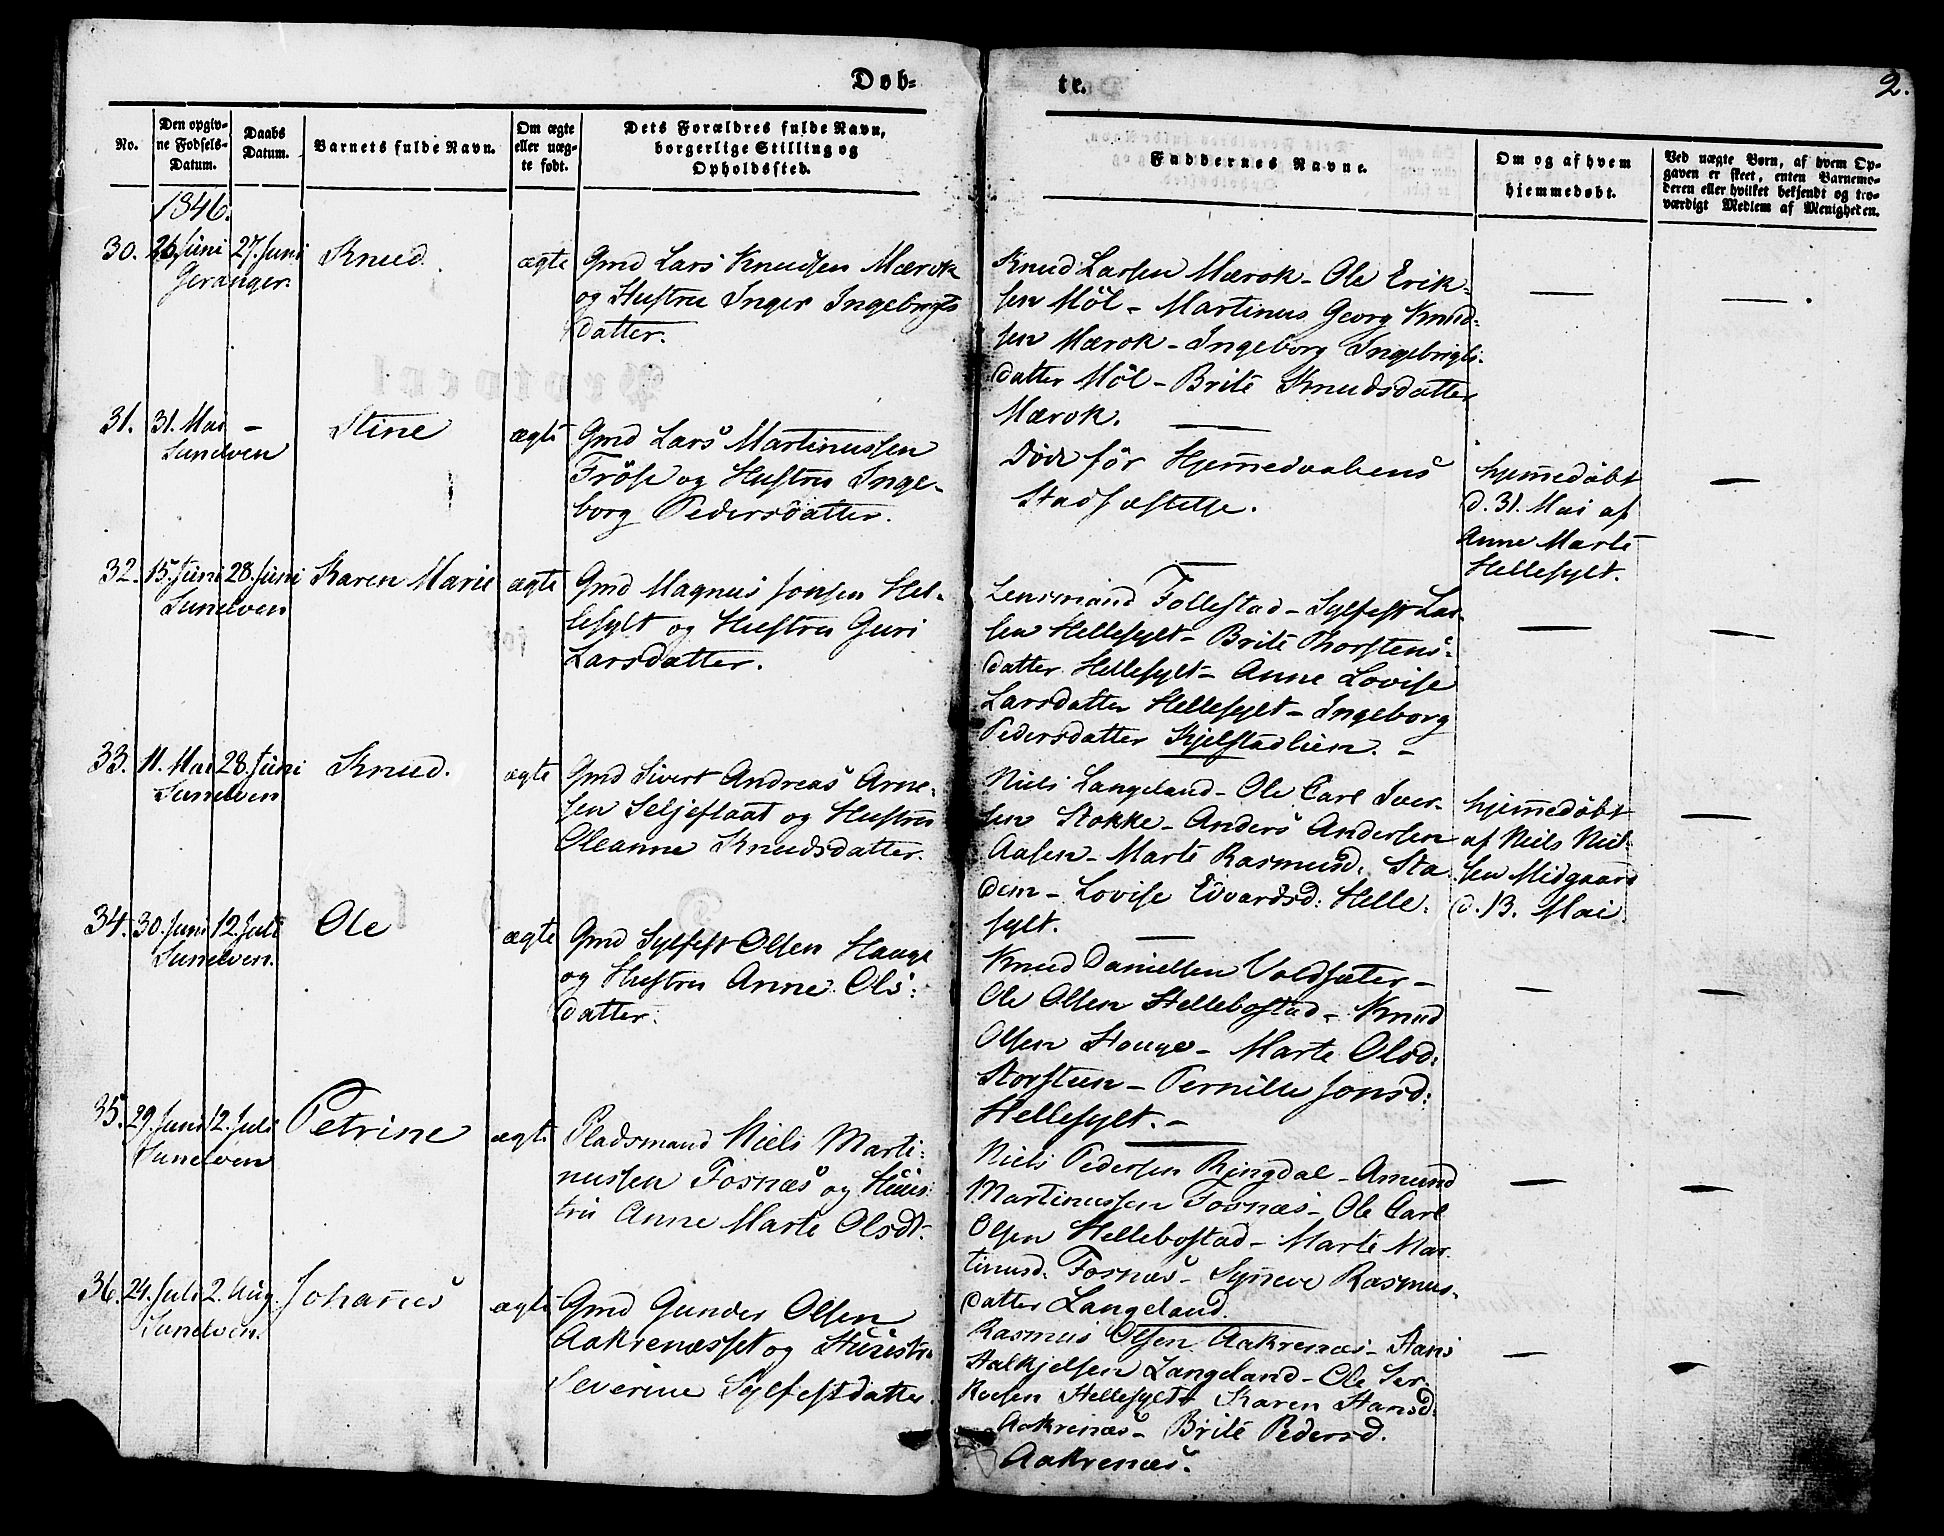 Døb-
te.
2.
No.
Den opgiv-
ne Fødsels-
Datum.
Daabs
Datum.
Barnets fulde Navn.
Om ægte
eller uæg-
te født.
Dets Forældres fulde Navn,
borgerlige Stilling og
Opholdssted.
Faddernes Navne.
Om og af hvem
hjemmedøbt.
Ved uægte Børn, af hvem Op-
gaven er skeet, enten Barnemo-
deren eller hvilket bekjendt og tro-
værdigt Medlem af Menigheden.
1846.
30.
26 Juni
Geranger.
27. Juni
Knud.
ægte
Gmd Lars Knudsen Mærok
og Hustru Inger Ingebrigts
datter.
Knud Larsen Mærok - Ole Erik-
sen Möl - Martinus Georg Knud-
sen Mærok - Ingeborg Ingebrigts-
datter Möl - Brite Knudsdatter
Mærok.
31.
31. Mai -
Sunelven
Stine
ægte
Gmd Lars Martinussen
Fröse og Hustru Inge-
borg Pedersdatter.
Död för Hjemedaabens
Stadfæstelse.
hjemedöbt
d. 31. Mai af
Anne Marte
Hellesylt.
32.
15. Juni
Sunelven
28. Juni
Karen Marie
ægte
Gmd Magnus Jonsen Hel-
lesylt og Hustru Guri
Larsdatter.
Lensmand Follestad - Sylfest Lar-
sen Hellesylt - Brite Thorstens-
datter Hellesylt - Anne Lovise
Larsdatter Hellesylt - Ingeborg
Pedersdatter Kjelstadlien. -
33.
11. Mai
Sunelven
28. Juni
Knud.
ægte
Gmd Sivert Andreas Arne-
sen Seljeflaat og Hustru
Oleanne Knudsdatter.
Niels Langeland - Ole Carl Iver-
sen Stokke - Anders Andersen
Aasen - Marte Rasmusd. Sta
dem - Lovise Edvardsd: Helle-
sylt.
hjemedöbt
af Niels Niel-
sen Midgaard
d. 13. Mai
34.
30. Juni
Sunelven.
12. Juli
Ole
ægte
Gmd Sylfest Olsen Hauge
og Hustru Anne Ols:
datter.
Knud Danielsen Voldsæter -
Ole Olsen Hellebostad - Knud
Olsen Hauge - Marte Olsd:
Storsteen - Pernille Jonsd:
Hellesylt. -
35.
29. Juni
Sunelven
12. Juli
Petrine
ægte
Pladsmand Niels Marti-
nussen Fosnæs og Huus-
tru Anne Marte Olsdt.
Niels Pedersen Ringdal - Amund
Martinussen Fosnæs - Ole Carl
Olsen Hellebostad - Marte Mar-
tinusd. Fosnæs - Syneve Rasmus-
datter Langeland.
36.
24. Juli
Sunelven.
2. Aug.
Johanes
ægte
Gmd Gunder Olsen
Aakrenæsset og Huustru
Severine Sylfestdatter.
Rasmus Olsen Aakrenæs - Hans
Halkjelsen Langeland - Ole Ser-
Hellesylt Karen Hansd:
Aakrenæs - Brite Pedersd.
Aakrenæs.